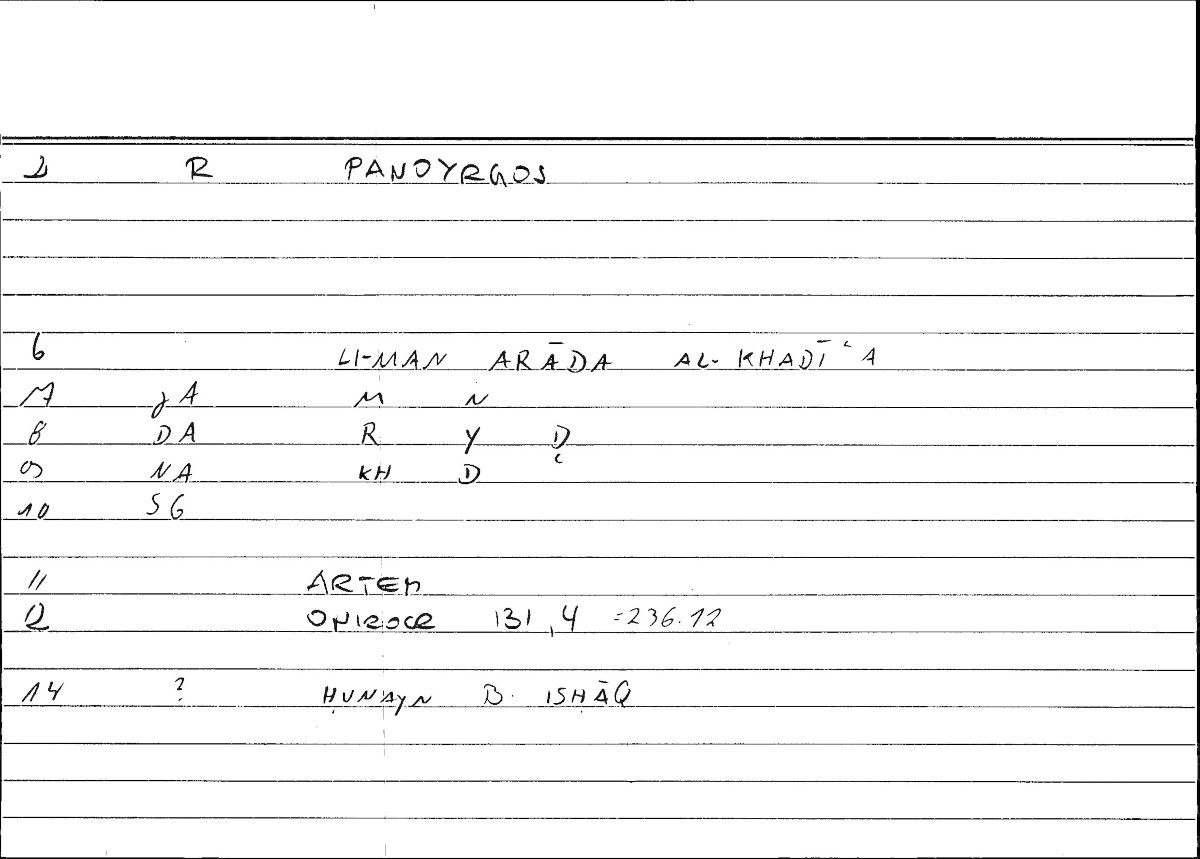 2 R PANOYRGOS
6 LI-MAN ARĀDA AL-KHADĪʿA
7 jA M N
8 DA R Y Ḍ
9 NA KH D ʿ
10 SG
11 ARTEM
12 ONIROCR 131,4 =236.12
14 ? ḤUNAYN B. ISḤĀQ